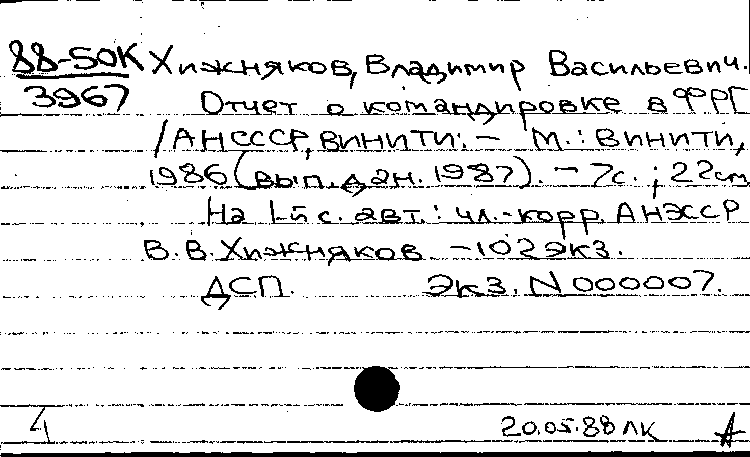 88-50К Хижняков, Владимир Васильевич.
3967 Отчет о командировке в ФРГ
/АН СССР, ВИНИТИ. – М.: ВИНИТИ,
1986 (вып. дан. 1987). – 7с.; 22см
На 1-й с. авт.: чл.-корр. АН ЭССР
В.В. Хижняков. – 102 экз.
ДСП. Экз. N 000007.
4 20.05.88 ЛК